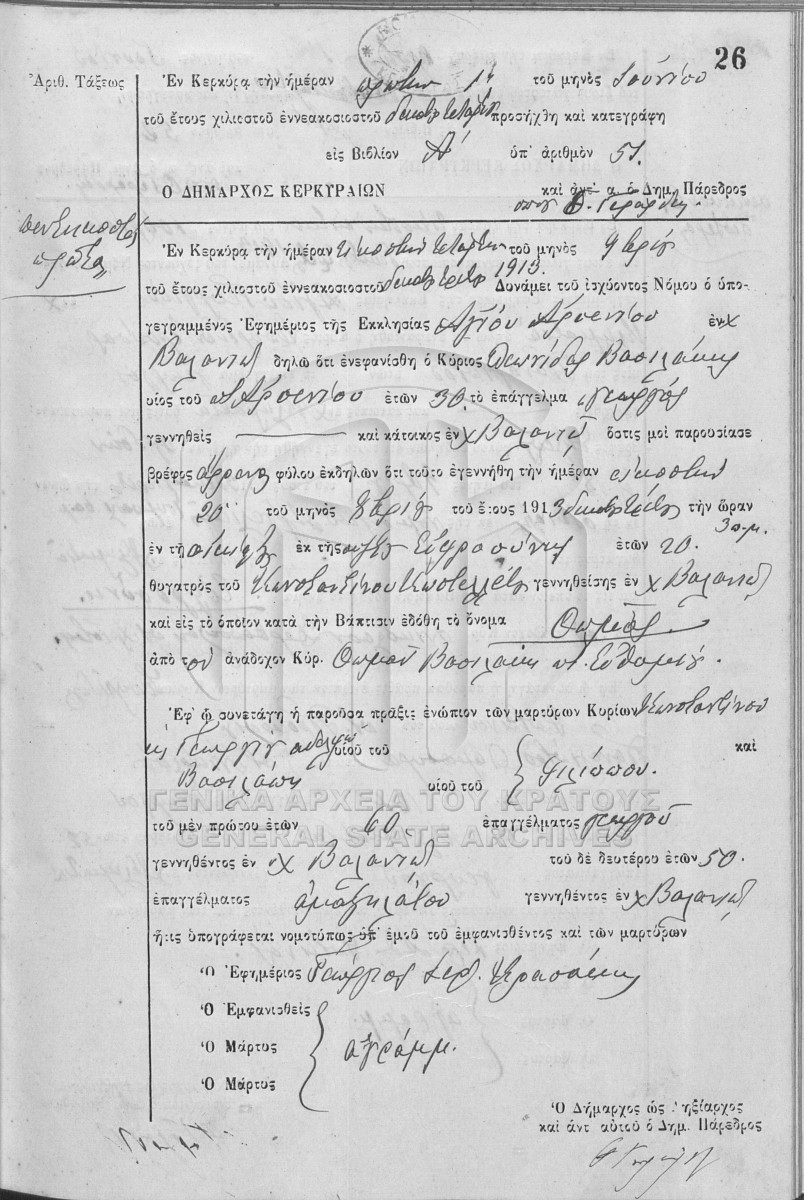 26
Ἀριθ. Τάξεως
Ἐν Κερκύρᾳ τὴν ἡμέραν πρώτην 1ην τοῦ μηνὸς Ἰουνίου
τοῦ ἔτους χιλιοστοῦ ἐννεακοσιοστοῦ δεκάτου τετάρτου προσήχθη καὶ κατεγράφη
εἰς Βιβλίον Α′ ὑπ' ἀριθμὸν 51.
Ὁ ΔΗΜΑΡΧΟΣ ΚΕΡΚΥΡΑΙΩΝ
καὶ ἀντ' α. ὁ Δημ. Πάρεδρος
πεντηκοστὴ
πρώτη
Ἐν Κερκύρᾳ τὴν ἡμέραν εἰκοστὴν τετάρτην τοῦ μηνὸς 9βρίου
τοῦ ἔτους χιλιοστοῦ ἐννεακοσιοστοῦ δεκάτου τρίτου 1913. Δυνάμει τοῦ ἰσχύοντος Νόμου ὁ ὑπο-
γεγραμμένος Ἐφημέριος τῆς Ἐκκλησίας Ἁγίου Ἀρσενίου ἐν χ
δηλῶ ὅτι ἐνεφανίσθη ὁ Κύριος Λεωνίδας Βασιλάκης
υἱὸς τοῦ Ἀρσενίου ἐτῶν 30 τὸ ἐπάγγελμα γεωργὸς
γεννηθεὶς καὶ κάτοικος ἐν χ ὅστις μοὶ παρουσίασε
βρέφος ἄρρενος φύλου ἐκδηλῶν ὅτι τοῦτο ἐγεννήθη τὴν ἡμέραν εἰκοστὴν
20 τοῦ μηνὸς 8βρίου τοῦ ἔτους 1913 δεκάτου τρίτου τὴν ὥραν
3 π.μ.
ἐν τῇ οἰκίᾳ ἐκ τῆς συζύγου Εὐφροσύνης ἐτῶν 20.
θυγατρὸς τοῦ Κωνσταντίνου γεννηθείσης ἐν χ
καὶ εἰς τὸ ὁποῖον κατὰ τὴν Βάπτισιν ἐδόθη τὸ ὄνομα Θωμᾶς
ἀπὸ τοῦ ἀνάδοχον Κύρ. Θωμᾶν Βασιλάκη
Ἐφ' ᾧ συνετάγη ἡ παροῦσα πρᾶξις ἐνώπιον τῶν μαρτύρων Κυρίων Κωνσταντίνου
Γεωργίου ἀδελφῶν υἱοῦ τοῦ καὶ
Βασιλάκη υἱοῦ τοῦ Φιλίππου.
ΓΕΝΙΚΑ ΑΡΧΕΙΑ ΤΟΥ ΚΡΑΤΟΥΣ
GENERAL STATE ARCHIVES
τοῦ μὲν πρώτου ἐτῶν 60. ἐπαγγέλματος γεωργοῦ
γεννηθέντος ἐν χ τοῦ δὲ δευτέρου ἐτῶν 50.
ἐπαγγέλματος ἁμαξηλάτου γεννηθέντος ἐν χ
ἥτις ὑπογράφεται νομοτύπως ὑπ' ἐμοῦ τοῦ ἐμφανισθέντος καὶ τῶν μαρτύρων
Ὁ Ἐφημέριος Γεώργιος
Ὁ Ἐμφανισθεὶς
Ὁ Μάρτυς ἀγράμμ.
Ὁ Μάρτυς
Ὁ Δήμαρχος ὡς Ληξίαρχος
καὶ ἀντ' αὐτοῦ ὁ Δημ. Πάρεδρος